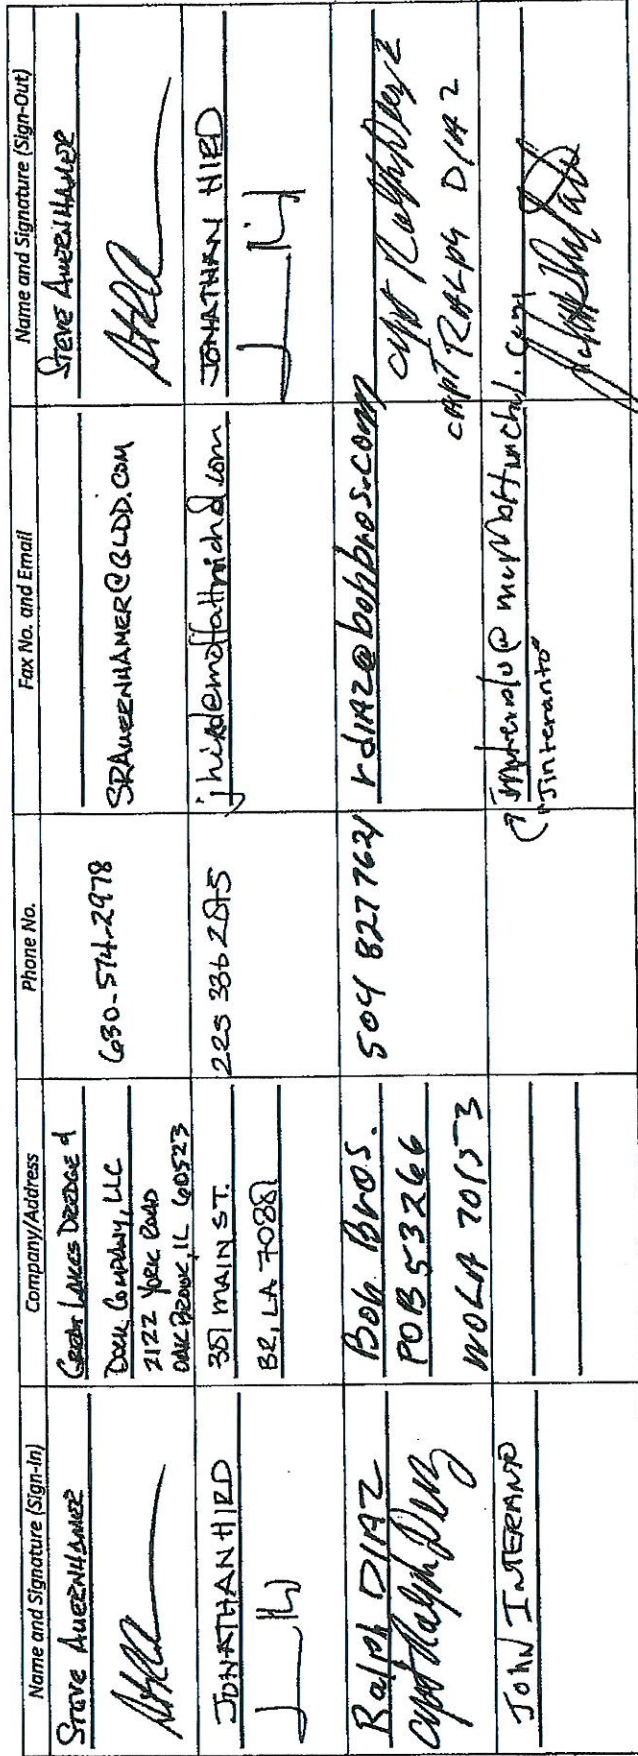 Name and Signature (Sign-In) Company/Address Phone No. Fax No. and Email Name and Signature (Sign-Out)
STEVE AUERNHAMER
GREAT LAKES DREDGE &
DOCK COMPANY, LLC
2122 YORK ROAD
OAK BROOK, IL 60523
630-574-2978
SRAUERNHAMER@GLDD.COM
STEVE AUERNHAMER
JONATHAN HIRD
301 MAIN ST.
BR, LA
225 336 2075
JONATHAN HIRD
Ralph DIAZ
Capt Ralph Diaz
Boh Bros.
POB 53266
NOLA 70153
504 827 7621
rdiaz@bohbros.com
Capt Ralph Diaz
CAPT RALPH DIAZ
JOHN INTERANTO
"Jinteranto"